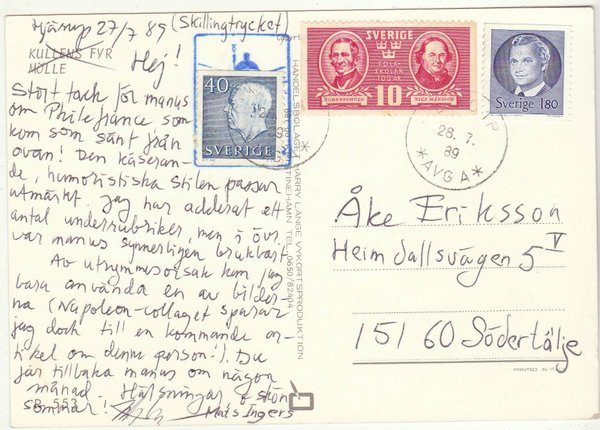 Hjärup 27/7 89 (Skillingtrycket)
KULLENS FYR
MÖLLE
Hej!
Stort tack för manus
om Philefrance som
kom som sänt från
ovan! Den käseran-
de, humoristiska stilen passar
utmärkt. Jag har adderat ett
antal underrubriker, men i övr.
var manus synnerligen brukbart.
Av utrymmesorsak kan jag
bara använda en av bilder-
na (Napoleon-collaget sparar
jag dock till en kommande ar-
tikel om denna person!). Du
får tillbaka manus om någon
månad. Hälsningar & skön
sommar!
Mats Ingers
SB 553
HANDELSBOLAGET HARRY LANGE VYKORTSPRODUKTION
TEL. 0550/82404
40
SVERIGE
SVERIGE
FOLK
SKOLAN
100 ÅR
10
RUDENSCHÖLD
NILS MÅNSSON
Sverige 180
28. 7.
89
*AVGA*
28. 7.
89
*AVGA*
Åke Eriksson
Heimdallsvägen 5 V
151 60 Södertälje
PRINTED IN